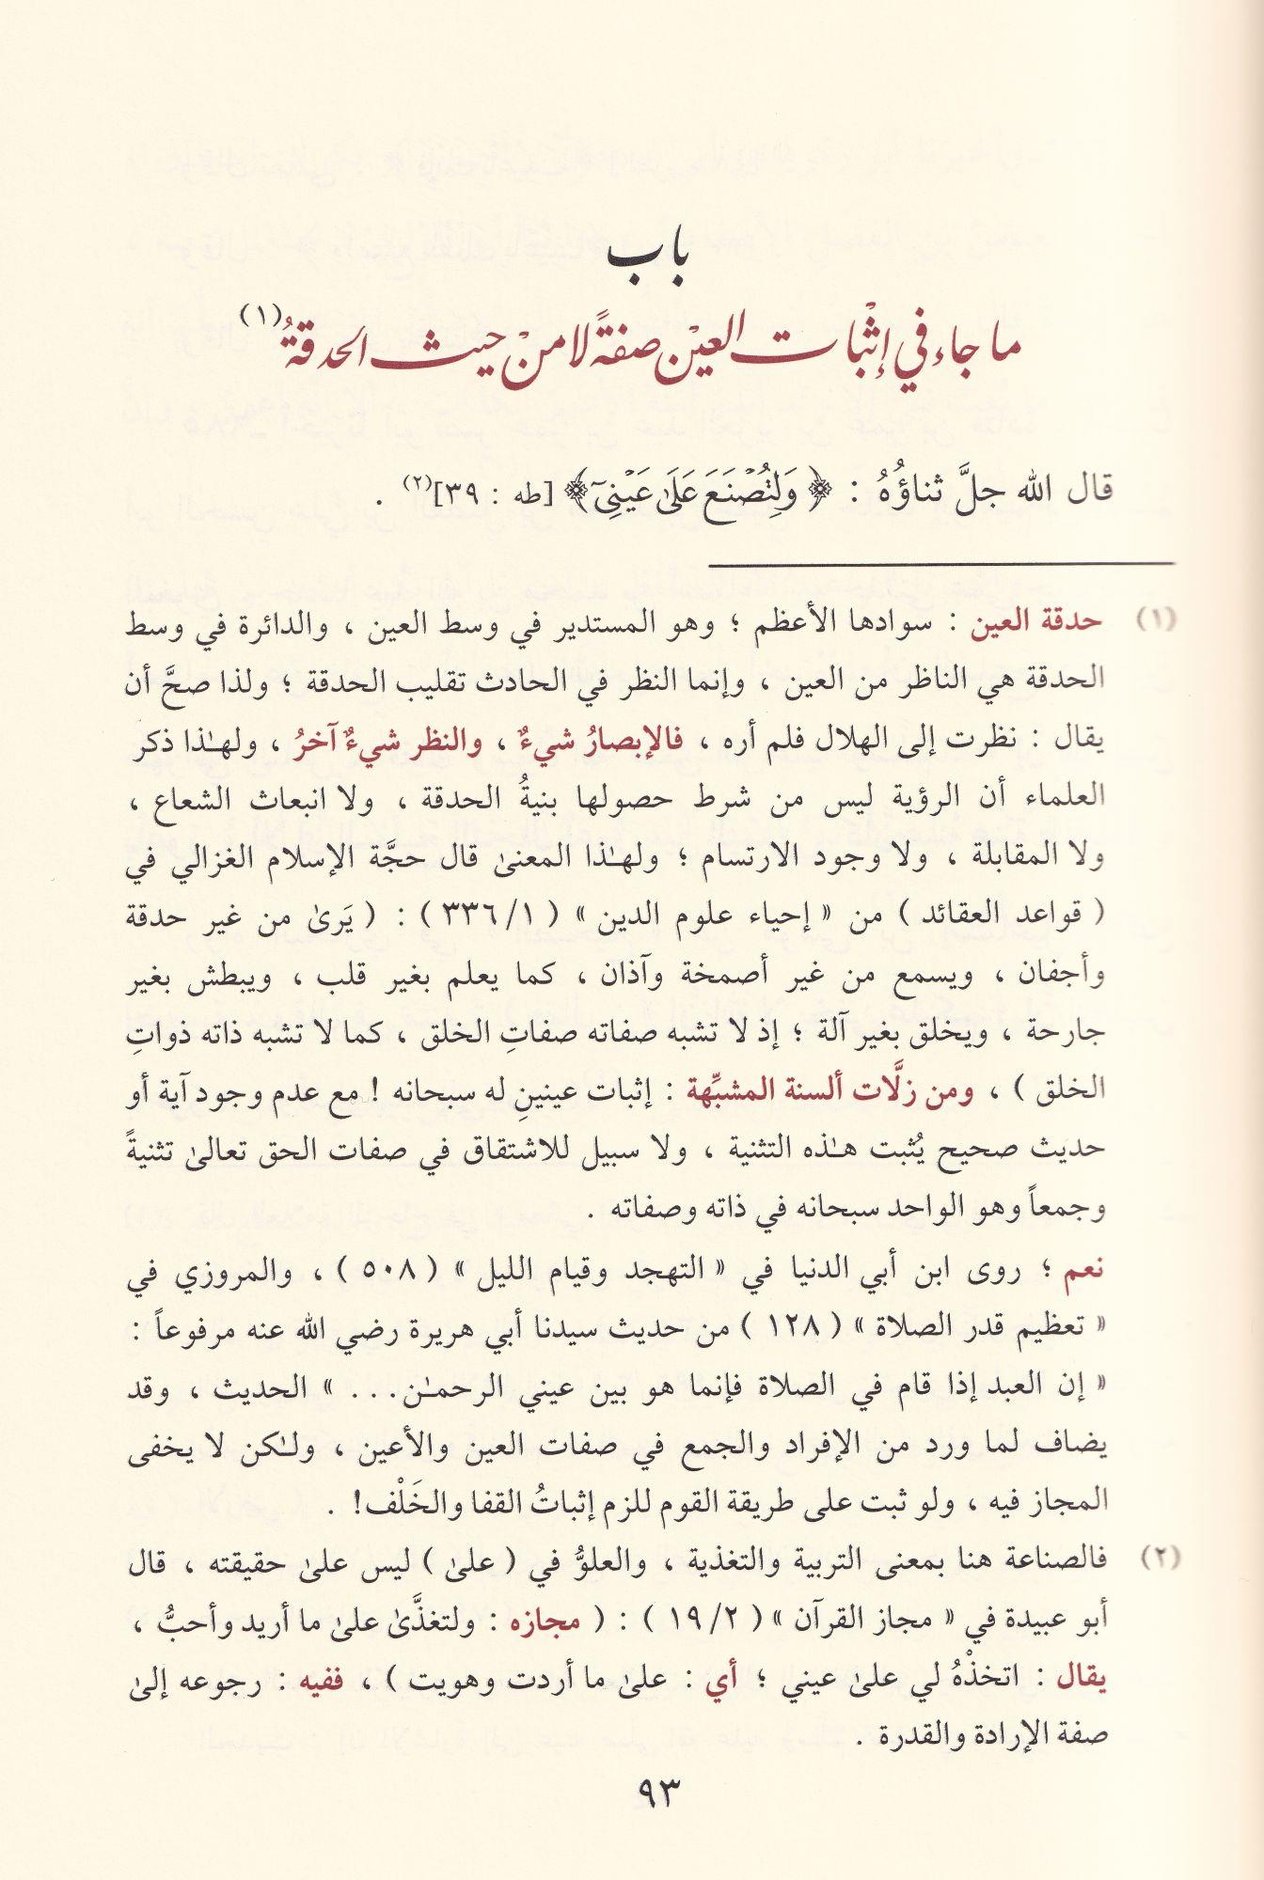 باب
ما جاء في إثْبات العيْن صفةً لا منْ حيث الحدقةُ(١)
قال الله جلَّ ثناؤُهُ : ﴿ وَلِتُصْنَعَ عَلَىٰ عَيْنِىٓ ﴾ [طه : ٣٩](٢) .
(١) حدقة العين : سوادها الأعظم ؛ وهو المستدير في وسط العين ، والدائرة في وسط
الحدقة هي الناظر من العين ، وإنما النظر في الحادث تقليب الحدقة ؛ ولذا صحَّ أن
يقال : نظرت إلى الهلال فلم أره ، فالإبصارُ شيءٌ ، والنظر شيءٌ آخرُ ، ولهـٰذا ذكر
العلماء أن الرؤية ليس من شرط حصولها بنيةُ الحدقة ، ولا انبعاث الشعاع ،
ولا المقابلة ، ولا وجود الارتسام ؛ ولهـٰذا المعنىٰ قال حجَّة الإسلام الغزالي في
( قواعد العقائد ) من « إحياء علوم الدين » ( ١/ ٣٣٦ ) : ( يَرىٰ من غير حدقة
وأجفان ، ويسمع من غير أصمخة وآذان ، كما يعلم بغير قلب ، ويبطش بغير
جارحة ، ويخلق بغير آلة ؛ إذ لا تشبه صفاته صفاتِ الخلق ، كما لا تشبه ذاته ذواتِ
الخلق ) ، ومن زلَّات ألسنة المشبِّهة : إثبات عينينِ له سبحانه ! مع عدم وجود آية أو
حديث صحيح يُثبت هـٰذه التثنية ، ولا سبيل للاشتقاق في صفات الحق تعالىٰ تثنيةً
وجمعاً وهو الواحد سبحانه في ذاته وصفاته .
نعم ؛ روى ابن أبي الدنيا في « التهجد وقيام الليل » ( ٥٠٨ ) ، والمروزي في
« تعظيم قدر الصلاة » ( ١٢٨ ) من حديث سيدنا أبي هريرة رضي الله عنه مرفوعاً :
« إن العبد إذا قام في الصلاة فإنما هو بين عيني الرحمـٰن... » الحديث ، وقد
يضاف لما ورد من الإفراد والجمع في صفات العين والأعين ، ولـٰكن لا يخفى
المجاز فيه ، ولو ثبت على طريقة القوم للزم إثباتُ القفا والخَلْف! .
(٢) فالصناعة هنا بمعنى التربية والتغذية ، والعلوُّ في ( علىٰ ) ليس علىٰ حقيقته ، قال
أبو عبيدة في « مجاز القرآن » ( ٢/ ١٩ ) : ( مجازه : ولتغذَّىٰ علىٰ ما أريد وأحبُّ ،
يقال : اتخذْهُ لي علىٰ عيني ؛ أي : علىٰ ما أردت وهويت ) ، ففيه : رجوعه إلىٰ
صفة الإرادة والقدرة .
٩٣